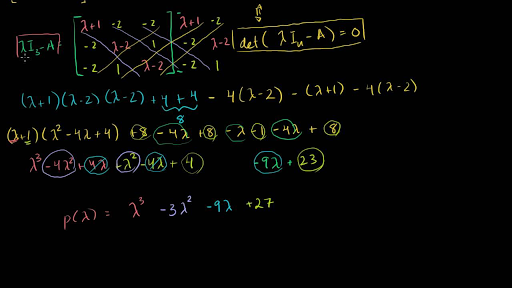 λI₃-A [ λ+1 -2 -2 ] λ+1 -2
-2 λ-2 1 -2 λ-2
-2 1 λ-2 -2 1
det(λIₙ-A)=0
(λ+1)(λ-2)(λ-2)+4+4 - 4(λ-2) - (λ+1) - 4(λ-2)
8
(λ+1)(λ²-4λ+4) +8 -4λ+8 -λ-1 -4λ + 8
λ³ -4λ²+4λ +λ²-4λ+4 -9λ+23
p(λ) = λ³ -3λ² -9λ +27